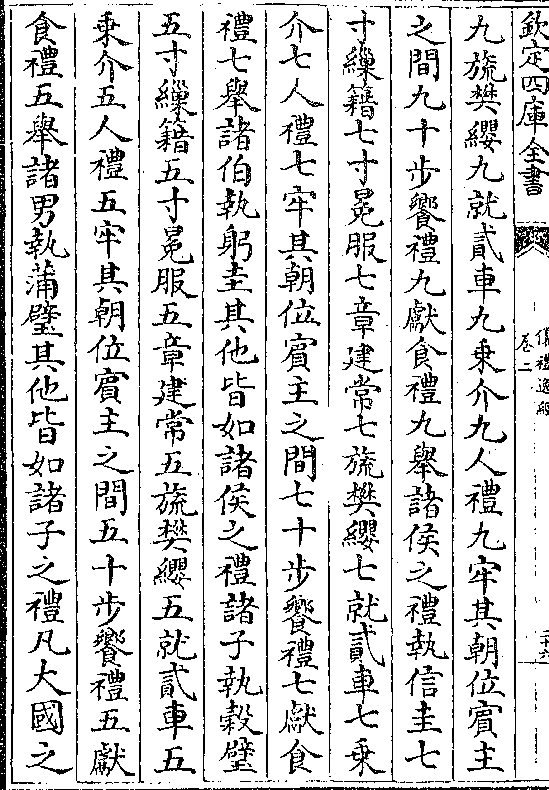 欽定四庫全書
儀禮逸經
卷二
九旒樊纓九就貳車九乗介九人禮九牢其朝位賓主
之間九十步饗禮九獻食禮九舉諸侯之禮執信圭七
寸繅籍七寸冕服七章建常七旒樊纓七就貳車七乗
介七人禮七牢其朝位賓主之間七十步饗禮七獻食
禮七舉諸伯執躬圭其他皆如諸侯之禮諸子執穀璧
五寸繅籍五寸冕服五章建常五旒樊纓五就貳車五
乗介五人禮五牢其朝位賓主之間五十步饗禮五獻
食禮五舉諸男執蒲璧其他皆如諸子之禮凡大國之